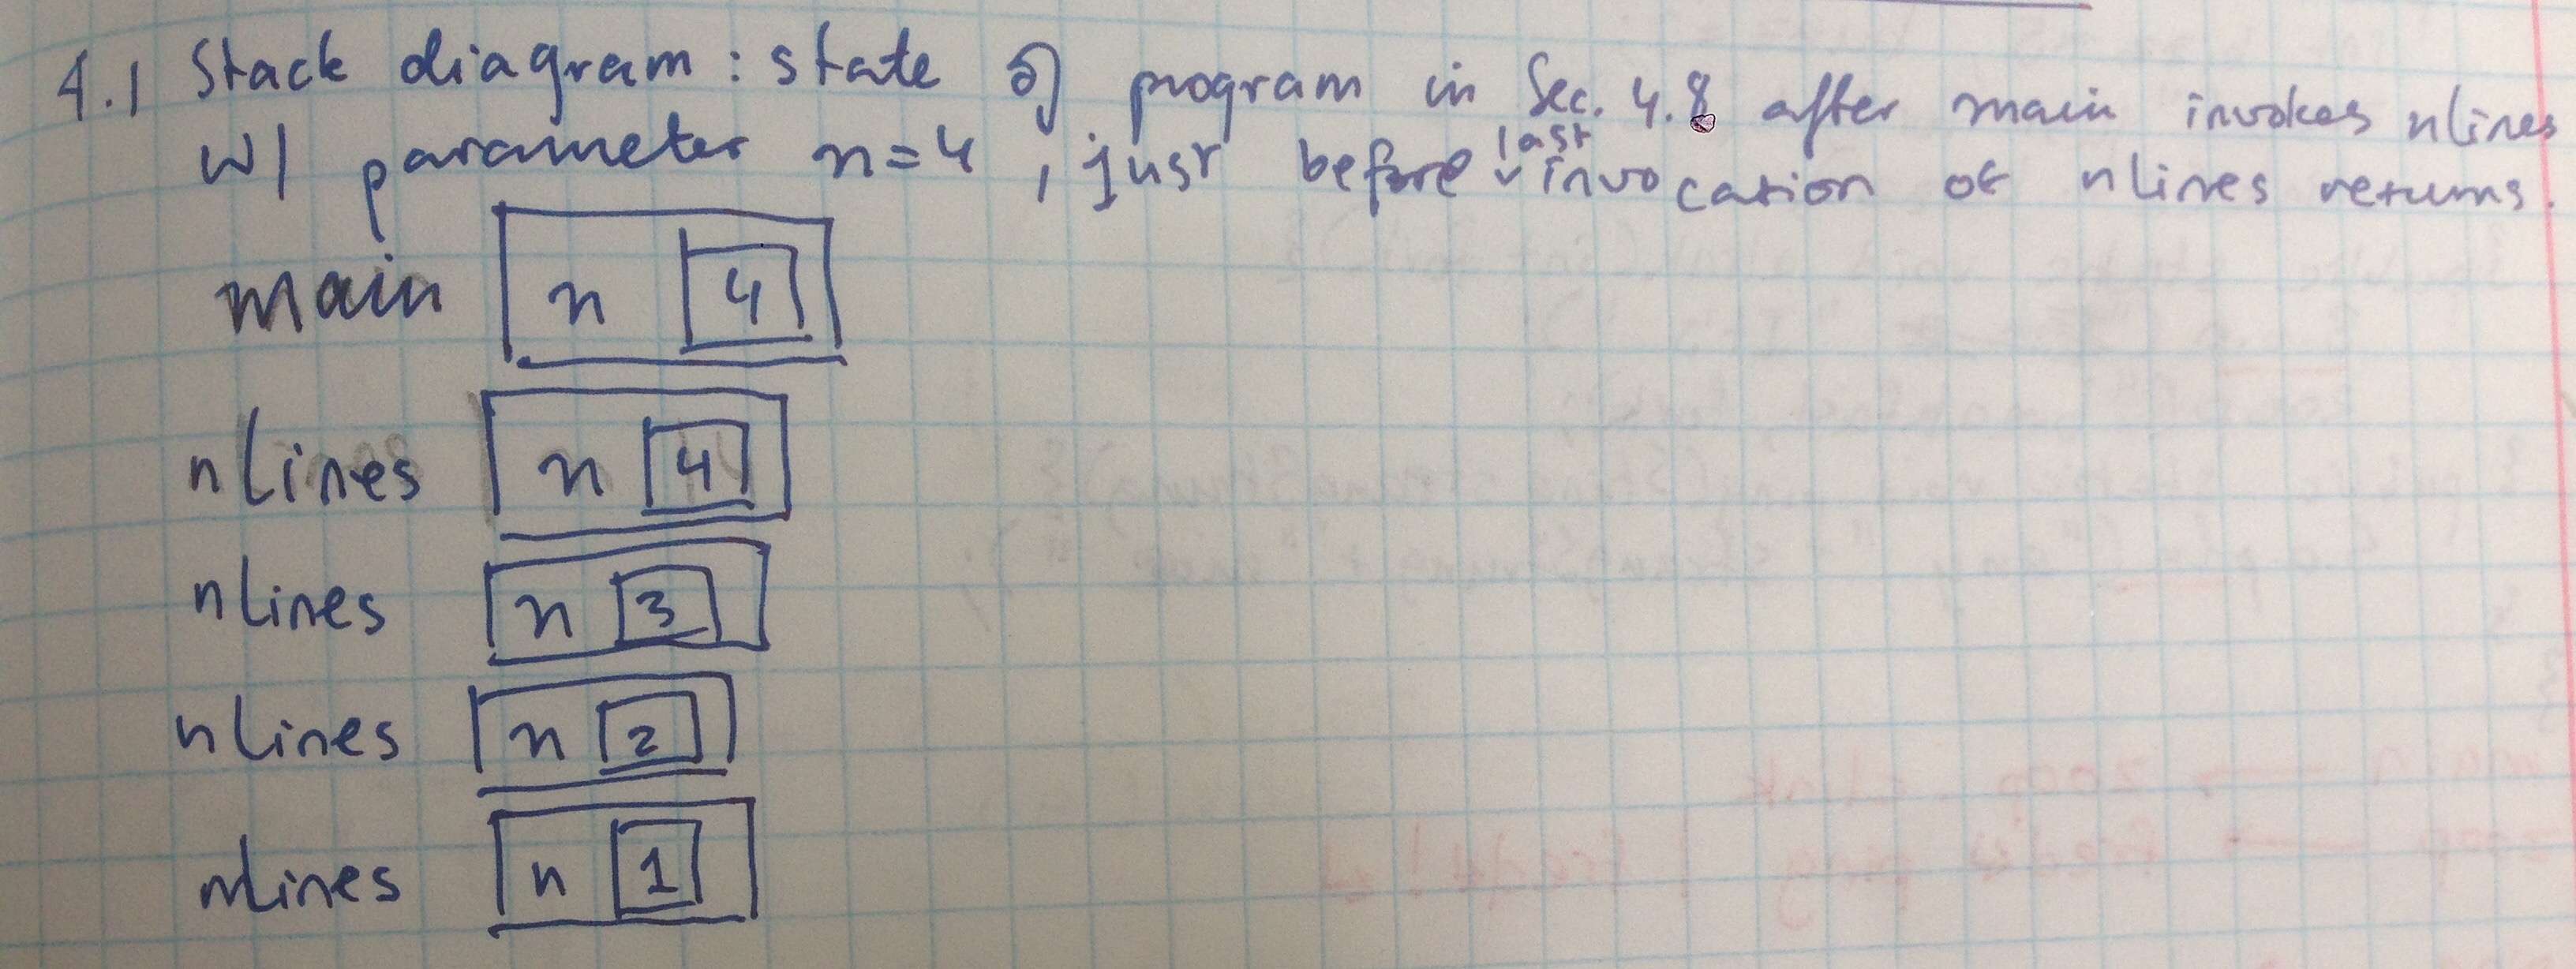 4.1 Stack diagram: state of program in Sec. 4.8 after main invokes nlines
w/ parameter n=4, just before last invocation of nlines returns.
main n 4
nlines n 4
nlines n 3
nlines n 2
nlines n 1